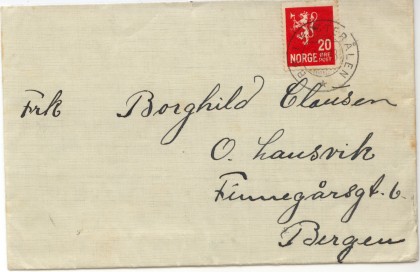 20
NORGE ØRE POST
Frk Borghild Clausen
O. Lausvik
Finnegårsgt. 6.
Bergen